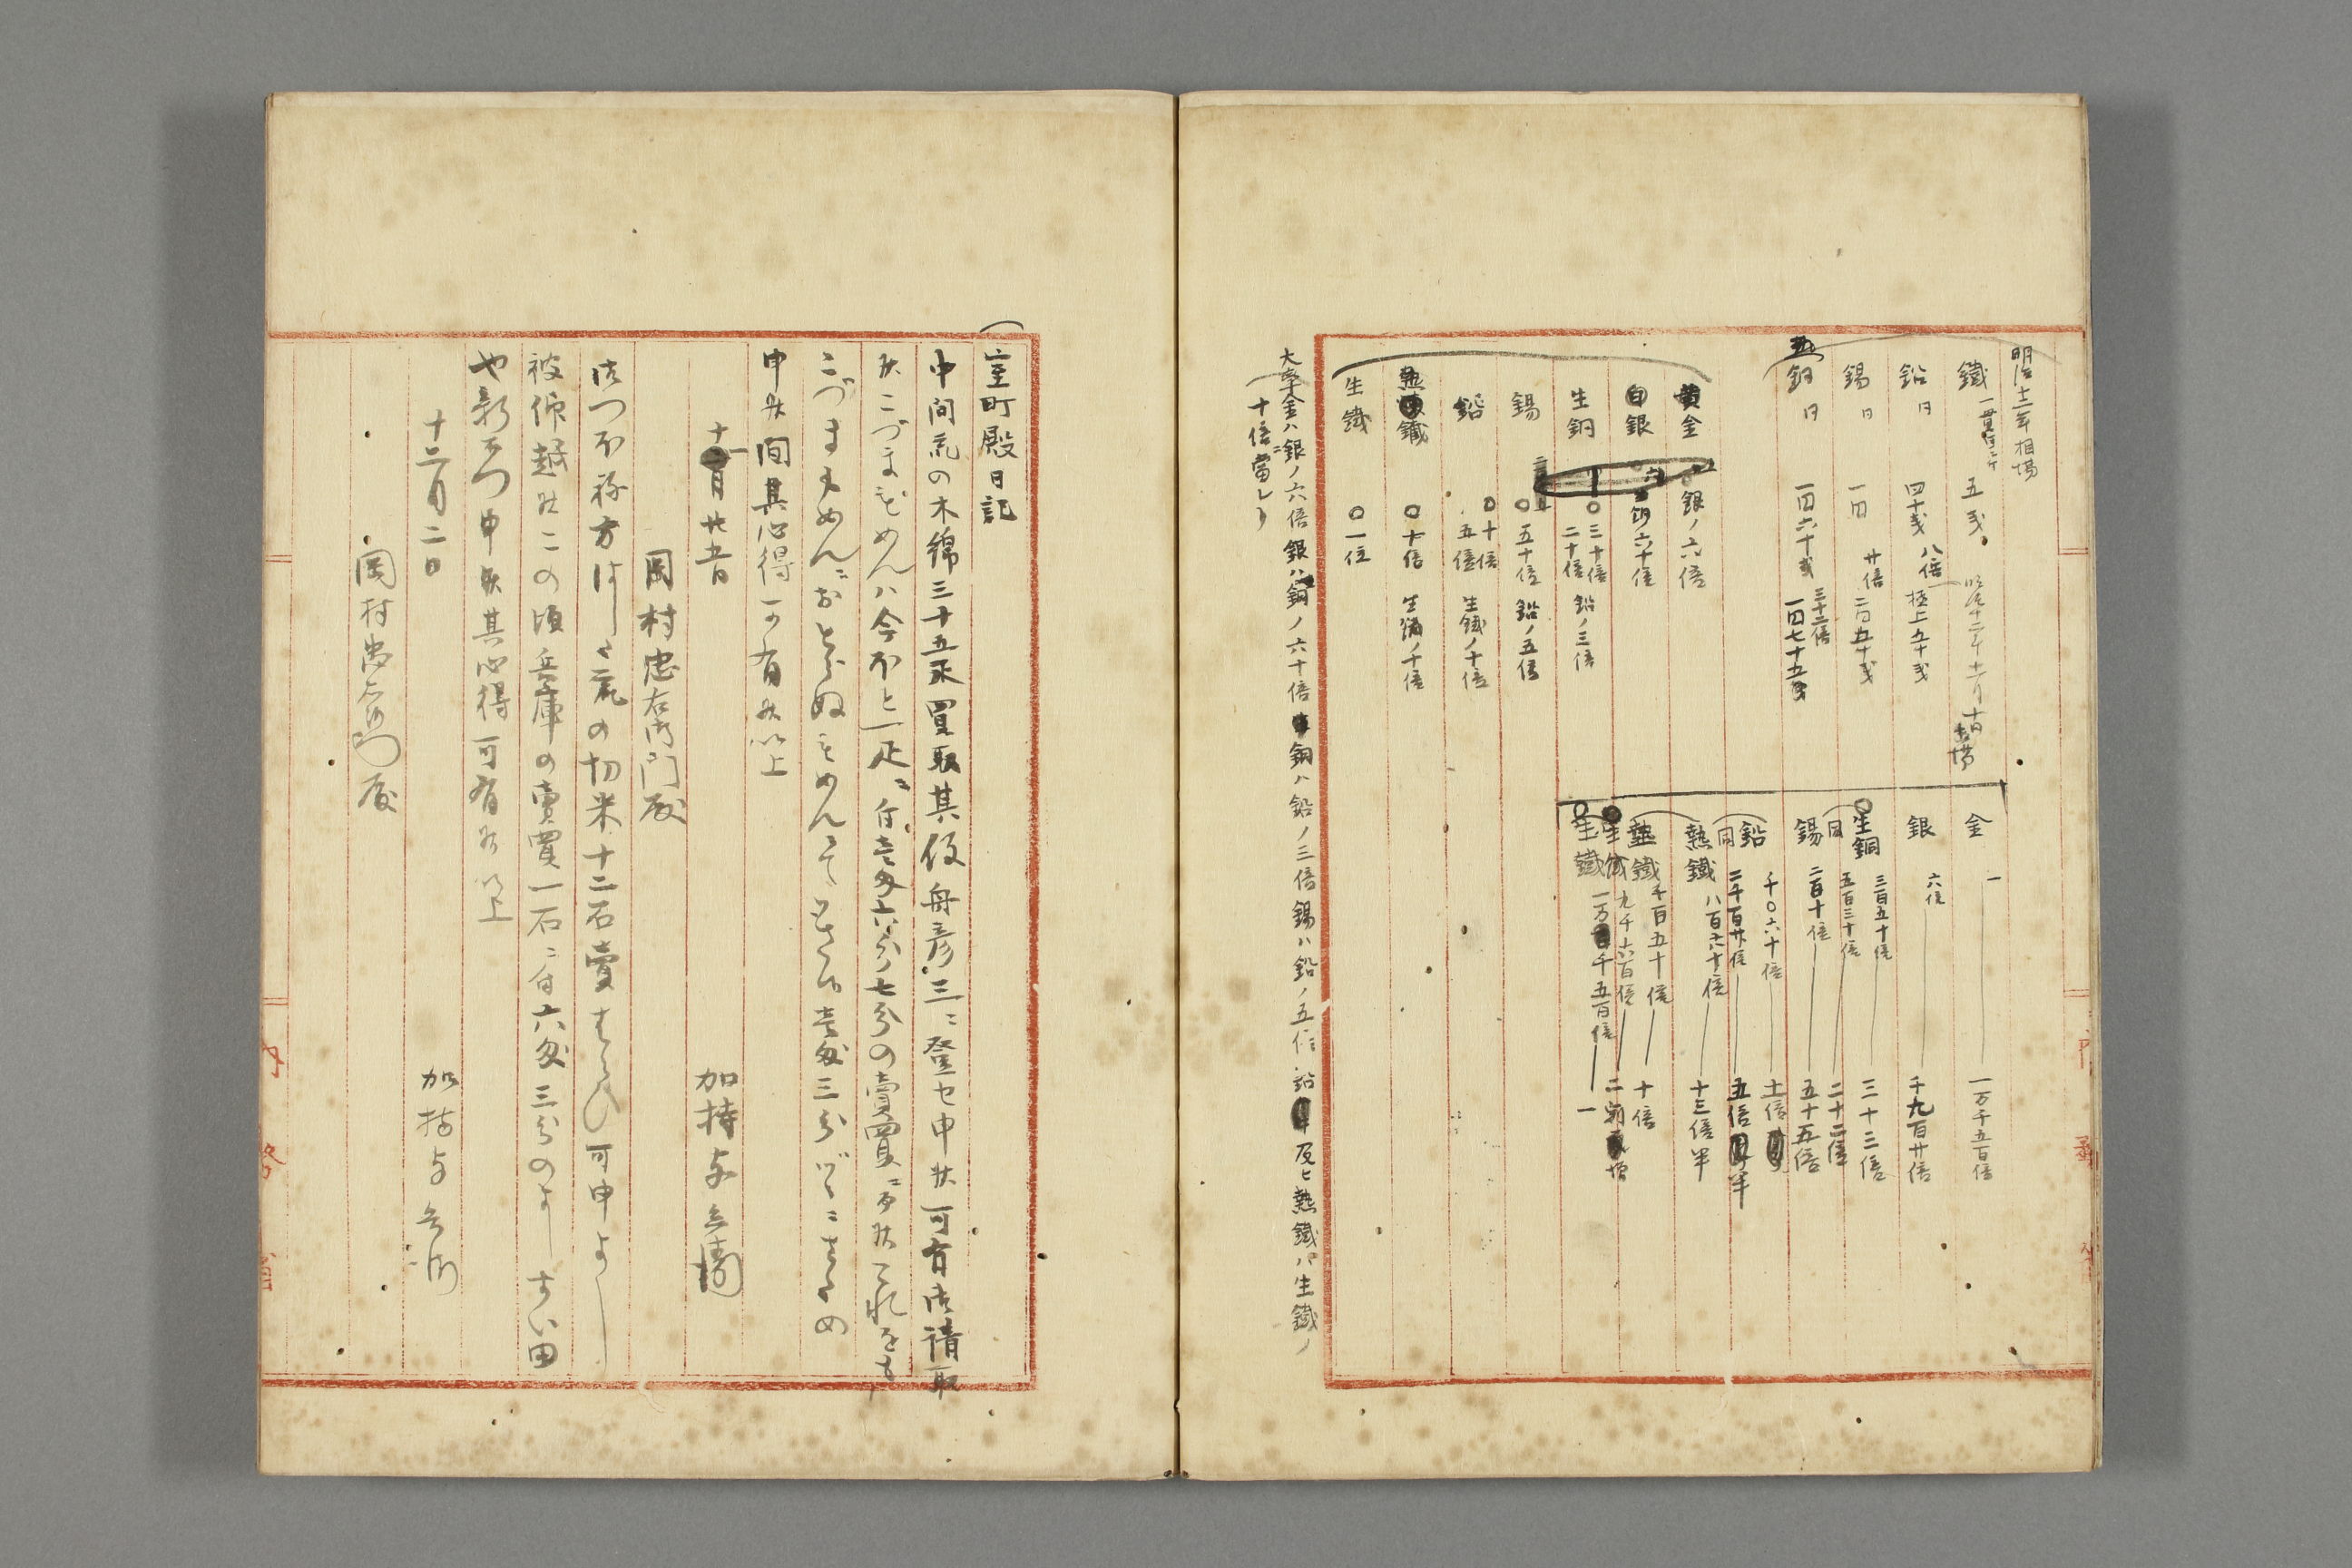 明治十二年相場
鐵 一貫目ニ付 五戋
鉛 日 四十戋 八倍 極上五十戋
錫 日 一円 廿倍 二円五十戋
銅 日 一円六十戋 三十二倍 一円七十五戋
黄金 銀ノ六倍
白銀 六十倍
生銅 三十倍 二十倍 鉛ノ三倍
錫 五十倍 鉛ノ五倍
鉛 十倍 五倍 生鐵ノ十倍
熟鐵 十倍 生鐵ノ十倍
生鐵 一位
金 一 一万千五百倍
銀 六倍 千九百廿倍
生銅 三百五十倍 三十三倍
同 五百三十倍 二十二倍
錫 二百十倍 五十五倍
鉛 千〇六十倍 十一倍
同 二千百廿倍 五倍半
熟鐵 八百六十倍 十三倍半
熟鐵 千百五十倍 十倍
生鐵 九千六百倍
生鐵 一万千五百倍 一
大率金ハ銀ノ六倍銀ハ銅ノ六十倍銅ハ鉛ノ三倍錫ハ鉛ノ五倍鉛及ヒ熟鐵ハ生鐵ノ
十倍ニ當レリ
室町殿日記
中間衆の木綿三十五疋買取其伇舟彦三ニ登セ申候可有御請取
候こづまもめんハ今ほと一疋ニ付壱匁六分七分の賣買ニ候これをも
こづまもめんニおとらぬもめんにて壱匁三分づゝニもとめ
申候間其心得可有候以上
十一月廿五日
加持与兵衛
岡村忠右衛門殿
衆の切米十二石賣はらひ可申よし
被仰越候この頃兵庫の賣買一石ニ付六匁三分のよし
申候其心得可有候以上
十二月二日
加持与兵衛
岡村忠右衛門殿